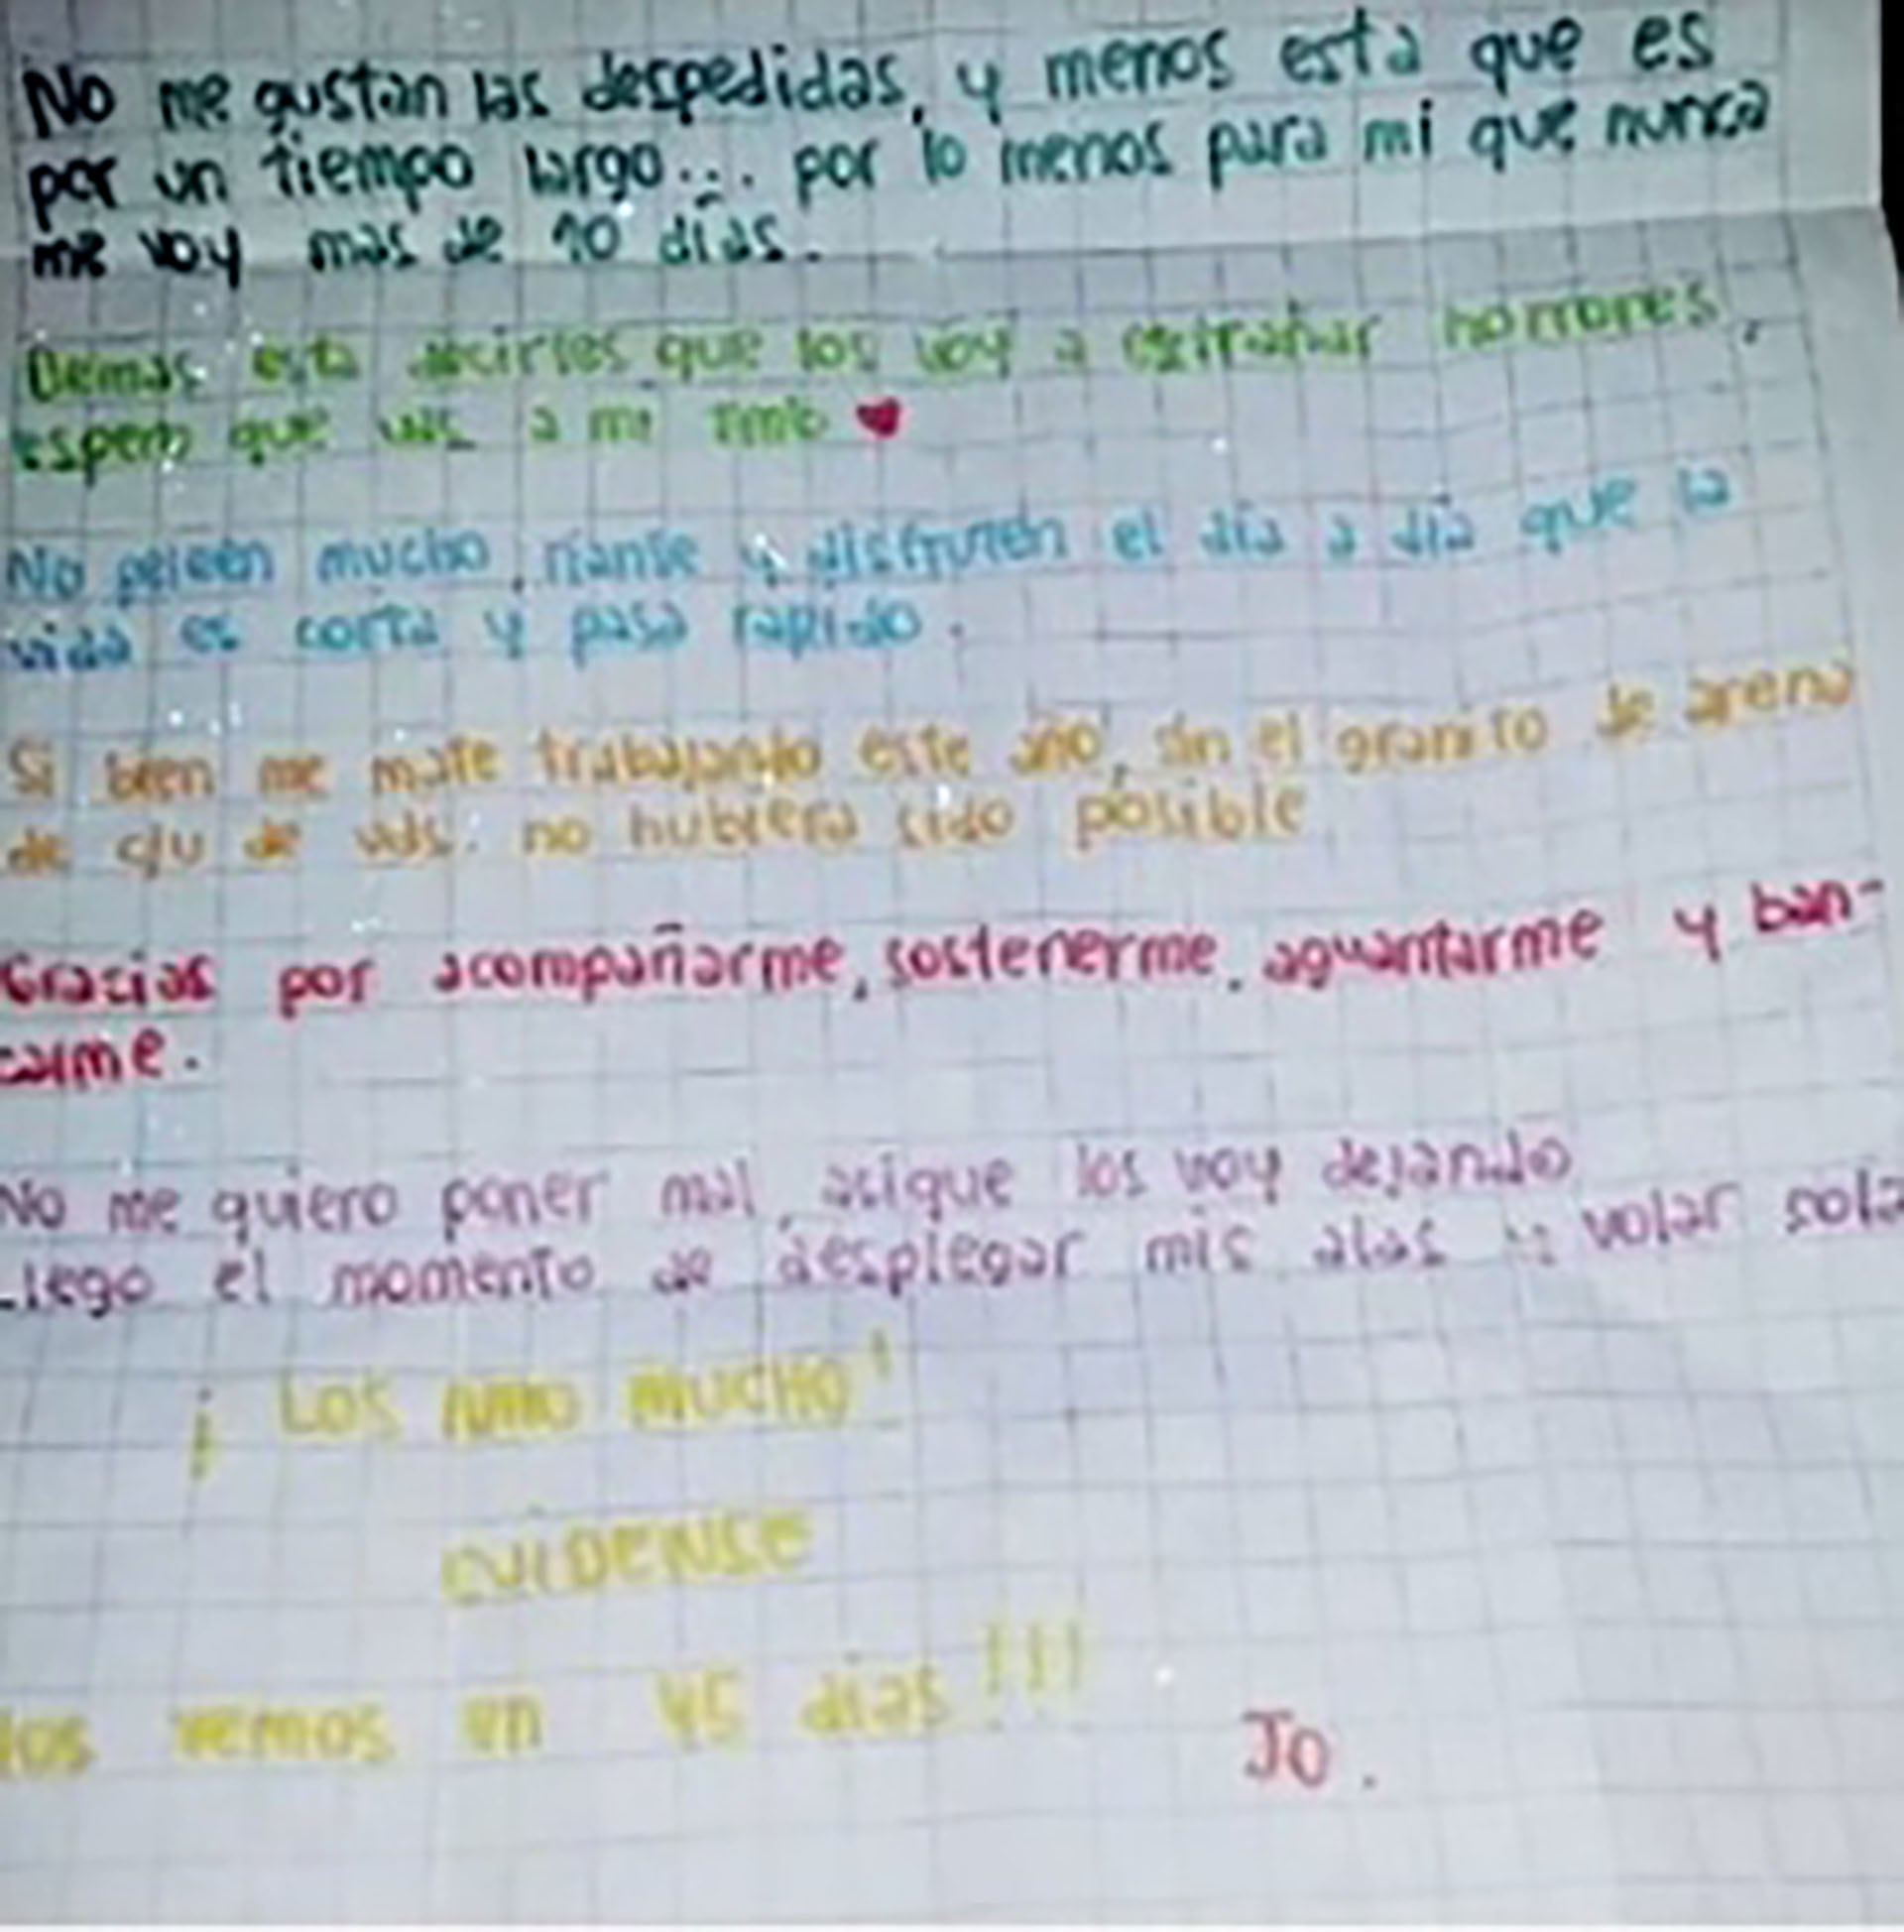 No me gustan las despedidas, y menos esta que es
por un tiempo largo... por lo menos para mi que nunca
me voy mas de 10 días.
Demas esta decirles que los voy a extrañar horrores,
espero que uds a mi tmb ❤
No peleen mucho, rianse y disfruten el día a día que la
vida es corta y pasa rapido.
Si bien me mate trabajando este año, sin el granito de arena
de c/u de uds. no hubiera sido posible
Gracias por acompañarme, sostenerme, aguantarme y ban-
carme.
No me quiero poner mal, asique los voy dejando
Llego el momento de desplegar mis alas y volar sola
¡LOS AMO MUCHO!
CUIDENSE
Nos vemos en 45 días!!!
JO.